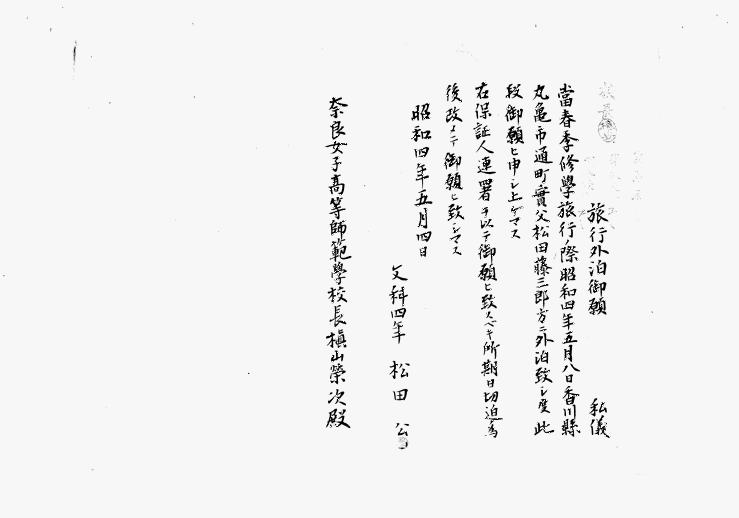 旅行外泊御願
私儀
當春季修學旅行ノ際昭和四年五月八日香川縣
丸亀市通町實父松田藤三郎方ニ外泊致シ度此
段御願ヒ申シ上ゲマス
右保証人連署ヲ以テ御願ヒ致スベキ所期日切迫ノ為
後改メテ御願ヒ致シマス
昭和四年五月四日
文科四年 松田 公
奈良女子高等師範學校長槇山榮次殿